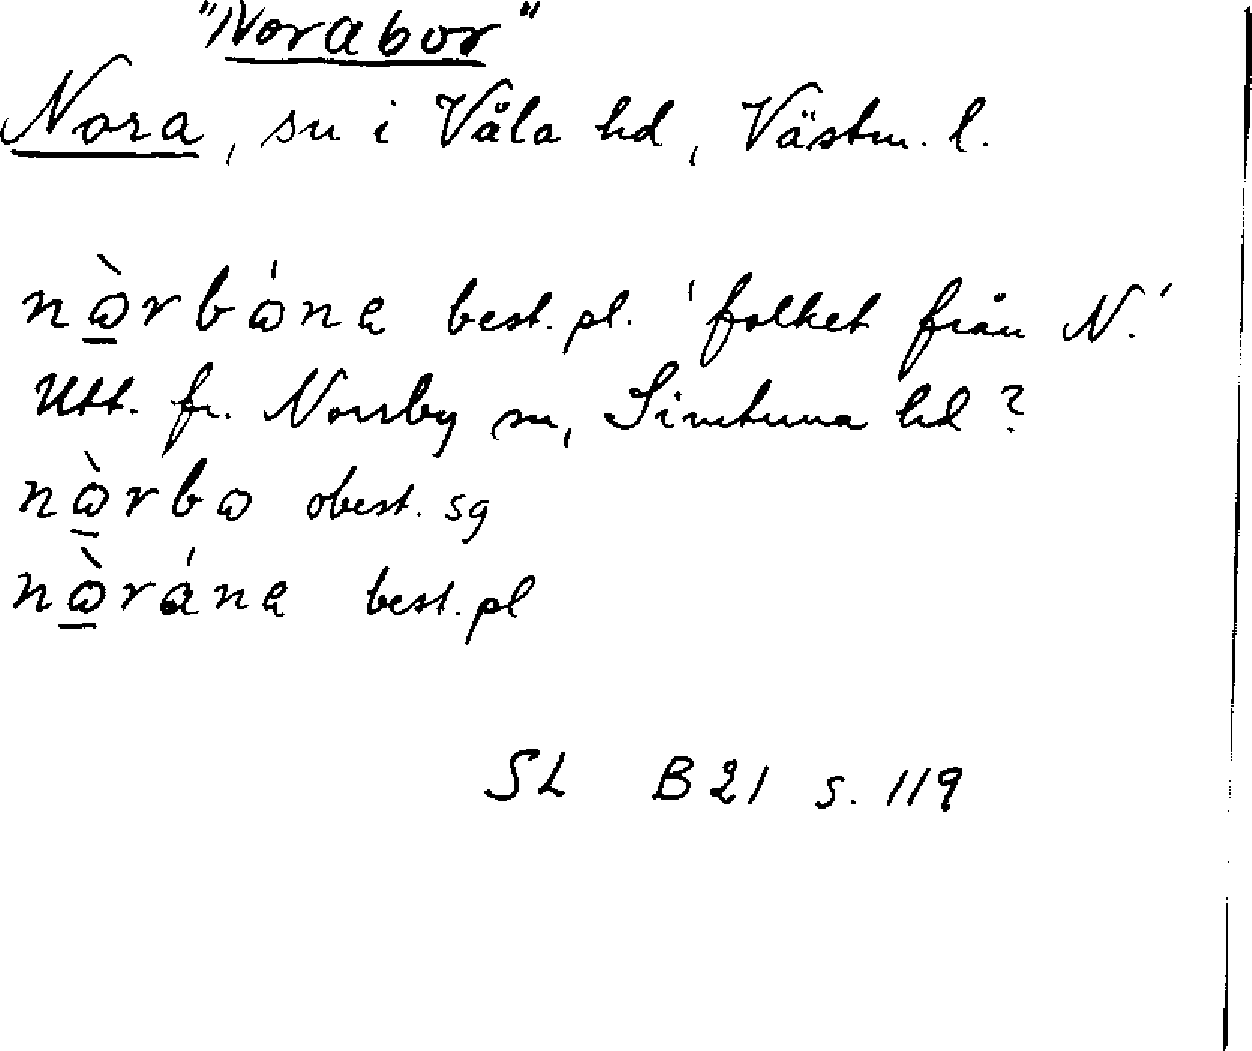 "Norabor"
Nora, sn i Våla hd, Västm. l.
nɷ̱̀rbɷ́nę best. pl. 'folket från N.'
Utt. fr. Norrby sn, Simtuna hd?
nɷ̱̀rbɷ obest. sg
nɷ̱̀ránę best. pl
SL B 21 s. 119